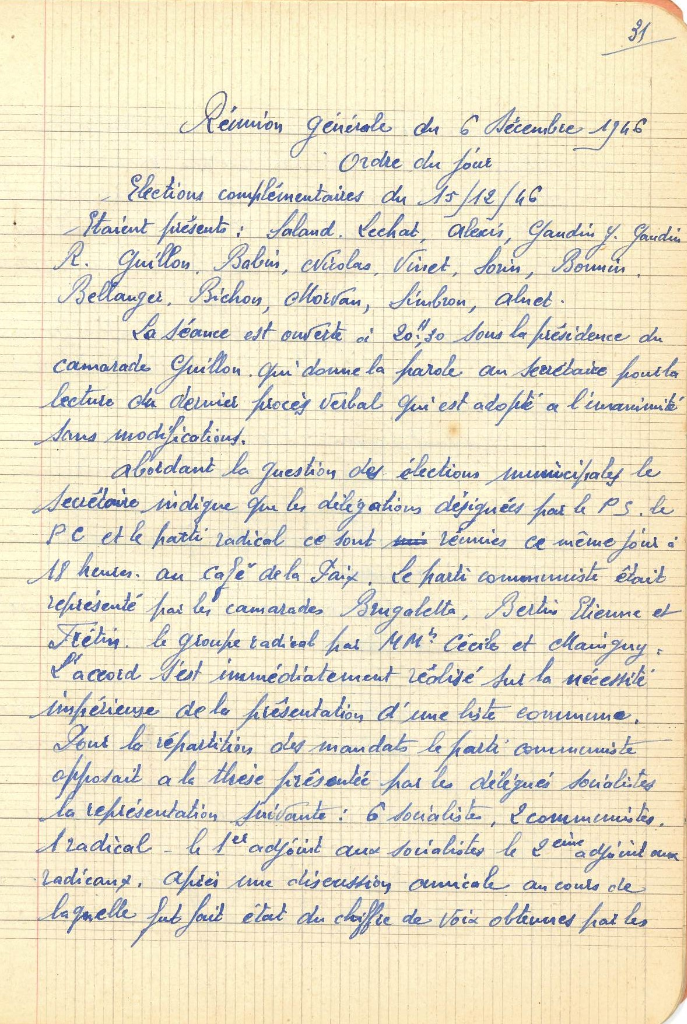 31
Réunion générale du 6 Décembre 1946
Ordre du jour
Elections complémentaires du 15/12/46
Etaient présents : Saland. Lechat, Alexis, Gaudin Y. Gaudin
R. Guillon, Babin, Nicolas, Vinet, Sorin, Bonnin.
Bellanger, Bichon, Morvan, Simbron, Alnet.
La séance est ouverte à 20H,30 sous la présidence du
camarade Guillon. qui donne la parole au secrétaire pour la
lecture du dernier procès verbal qui est adopté a l'unanimité
sans modifications.
Abordant la question des élections municipales le
secrétaire indique que les délégations désignées par le P S. le
P C et le parti radical ce sont réunies ce même jour à
18 heures. au café de la Paix. Le parti communiste était
représenté par les camarades Brugaletta, Bertin Etienne et
Frétin. le groupe radical par MMrs Cécile et Marigny.
L'accord s'est immédiatement réalisé sur la nécessité
impérieuse de la présentation d'une liste commune.
Pour la répartition des mandats le parti communiste
opposait a la thèse présentée par les délégués socialistes
la représentation suivante : 6 socialistes, 2 communistes.
1 radical - le 1er adjoint aux socialistes le 2eme adjoint aux
radicaux. Après une discussion amicale au cours de
laquelle fut fait état du chiffre de voix obtenues par les